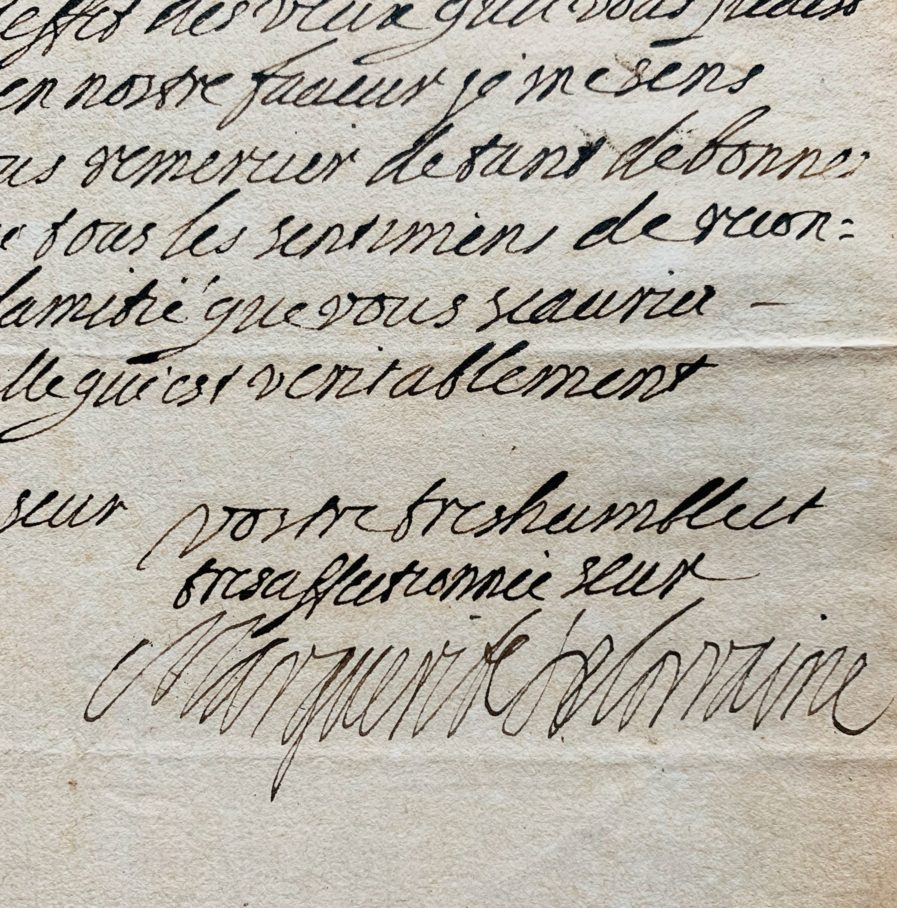 effet des veux que vous faites
en nostre faueur je me sens
us remercier de tant de bonnes
tous les sentimens de recon=
lamitié que vous scauriez —
lle qui est veritablement
seur vostre treshumble et
tresaffectionnée seur
Marguerite de lorraine